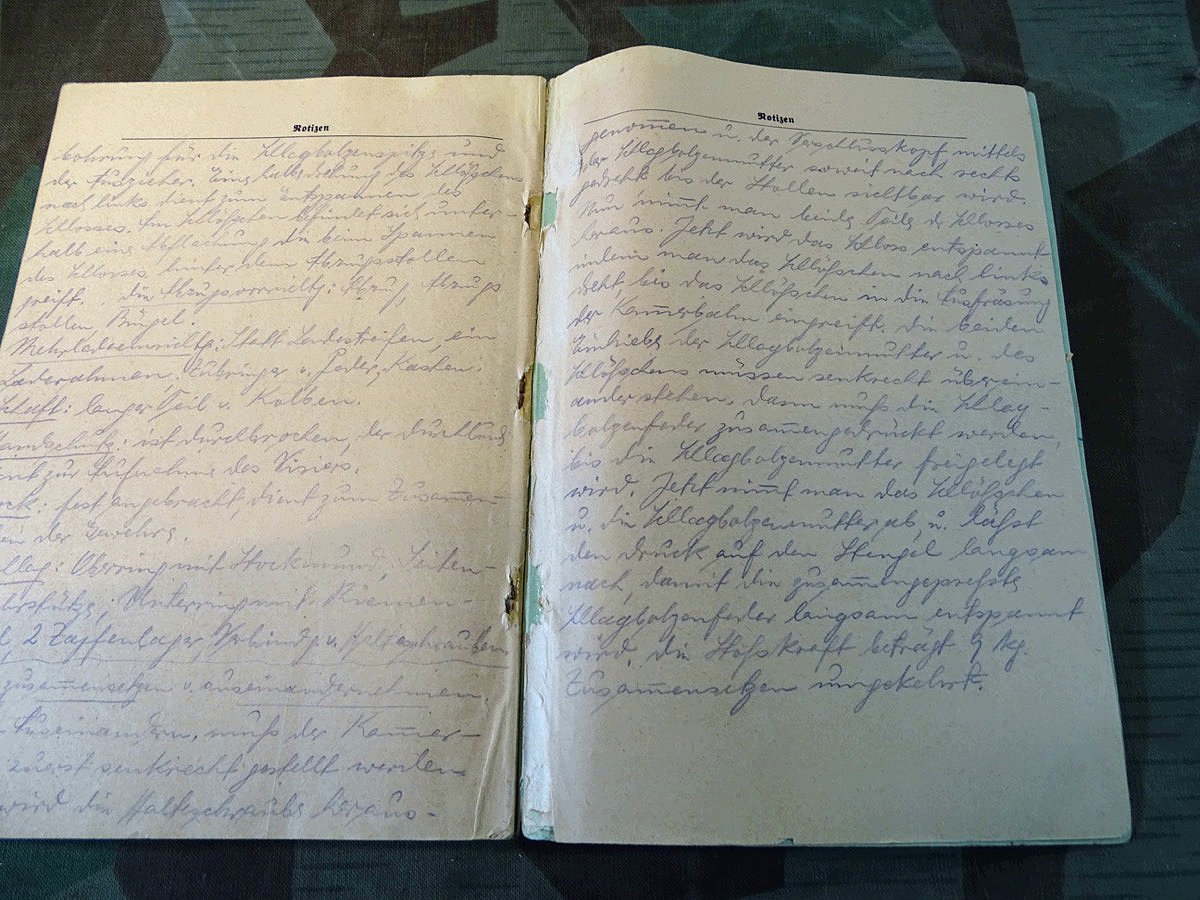 Notizen
bohrung für die Schlagbolzenspitze und
der Auszieher. Eine Linksdrehung des Schlößchens
nach links dient zum Entspannen des
Schlosses. Am Schlößchen befindet sich unter-
halb eine Abflachung die beim Spannen
des Schlosses hinter dem Abzugsstollen
greift. die Abzugsvorrichtg: Abzug, Abzugs
stollen, Bügel.
Mehrladeeinrichtg: Statt Ladestreifen, ein
Laderahmen. Zubringer u. Feder, Kasten.
Schaft: langer Teil u. Kolben.
Handschutz: ist durchbrochen, der
ent zur Aufnahme des Visiers.
ock: fest angebracht, dient zum Zusammen=
en der Gewehre.
chlag: Oberring mit Stockmund, Seiten-
rstütze; Unterring mit Riemen-
l, 2 Zapfenlager, Verbindgs u. Halteschrauben
zusammensetzen u. auseinandernehmen.
Auseinandern. muß der Kammer-
zuerst senkrecht gestellt werden
wird die Halteschraube heraus-
Notizen
genommen u. der Verschlusskopf mittels
der Schlagbolzenmutter soweit nach rechts
gedreht bis der Stollen sichtbar wird.
Nun nimmt man beide Teile d. Schlosses
heraus. Jetzt wird das Schloss entspannt
indem man das Schlößchen nach links
dreht bis das Schlößchen in die Ausfräsung
der Kammerbahn eingreift. die beiden
der Schlagbolzenmutter u. des
Schlößchens müssen senkrecht überein-
ander stehen. dann muß die Schlag-
bolzenfeder zusammengedrückt werden,
bis die Schlagbolzenmutter freigelegt
wird. Jetzt nimmt man das Schlößchen
u. die Schlagbolzenmutter ab, u. läßt
den druck auf den Stengel langsam
nach, damit die zusammengepreßte
Schlagbolzenfeder langsam entspannt
wird. die Stoßkraft beträgt 9 kg.
Zusammensetzen umgekehrt.